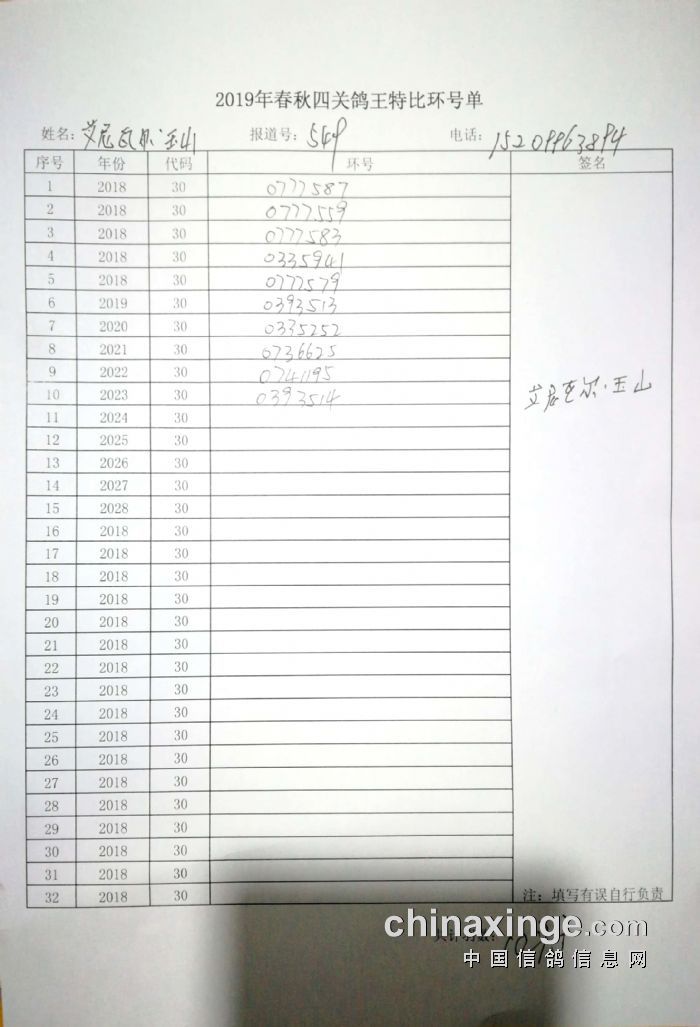 2019年春秋四关鸽王特比环号单
姓名: 艾尼瓦尔·玉山 报道号: 549 电话: 15209963894
序号 年份 代码 环号 签名
1 2018 30 0777587
2 2018 30 0777559
3 2018 30 0777583
4 2018 30 0335941
5 2018 30 0777579
6 2019 30 0393513
7 2020 30 0335252
8 2021 30 0736625
9 2022 30 0741195
10 2023 30 0393514 艾尼瓦尔·玉山
11 2024 30
12 2025 30
13 2026 30
14 2027 30
15 2028 30
16 2018 30
17 2018 30
18 2018 30
19 2018 30
20 2018 30
21 2018 30
22 2018 30
23 2018 30
24 2018 30
25 2018 30
26 2018 30
27 2018 30
28 2018 30
29 2018 30
30 2018 30
31 2018 30
32 2018 30 注: 填写有误自行负责
共计羽数:
chinaxinge.com
中国信鸽信息网